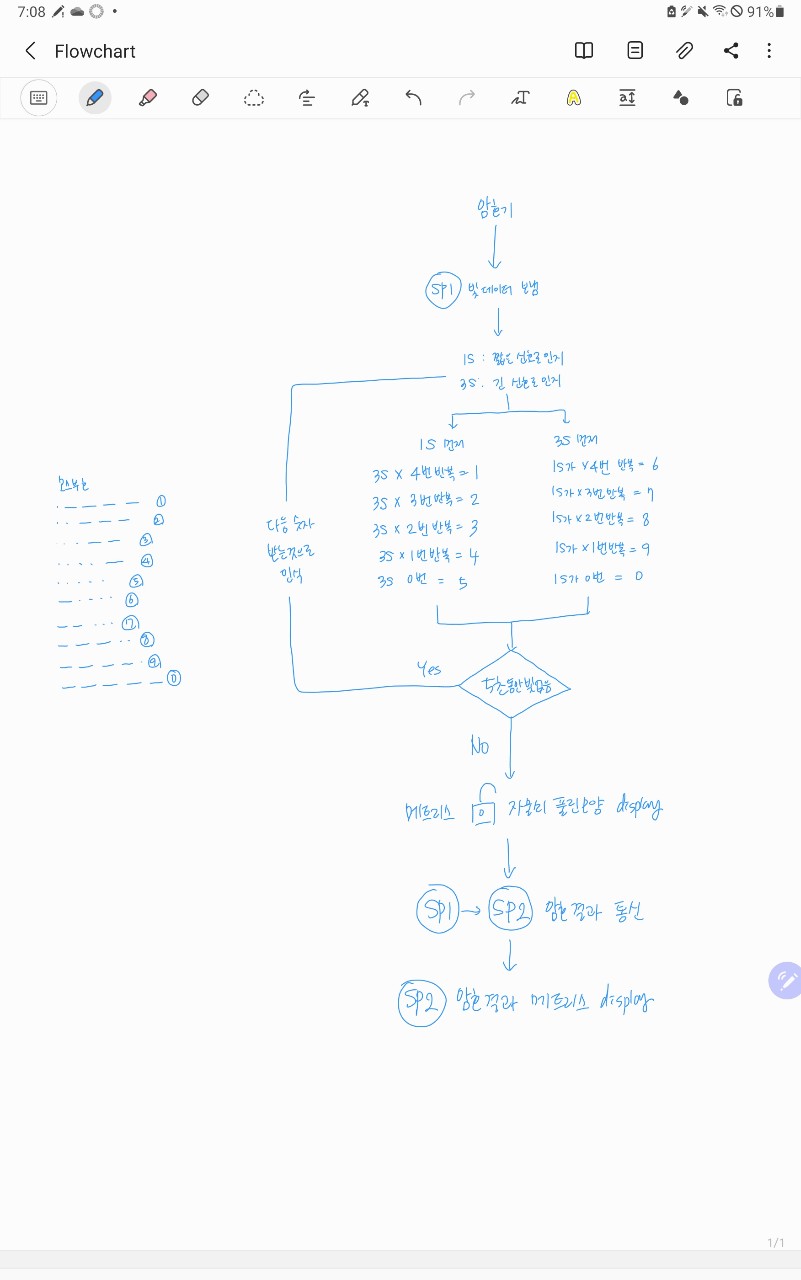 7:08
91%
Flowchart
암호기
SP1 빛 데이터 보냄
1S : 짧은 신호로 인지
3S : 긴 신호로 인지
1S 먼저
3S × 4번 반복 = 1
3S × 3번 반복 = 2
3S × 2번 반복 = 3
3S × 1번 반복 = 4
3S 0번 = 5
3S 먼저
1S가 × 4번 반복 = 6
1S가 × 3번 반복 = 7
1S가 × 2번 반복 = 8
1S가 × 1번 반복 = 9
1S가 0번 = 0
모스부호
· — — — — ①
· · — — — ②
· · · — — ③
· · · · — ④
· · · · · ⑤
— · · · · ⑥
— — · · · ⑦
— — — · · ⑧
— — — — · ⑨
— — — — — ⓪
다음 숫자
받는것으로
인식
Yes
5초동안 빛 없음
No
메트리스 자물쇠 풀린모양 display
SP1 → SP2 암호결과 통신
SP2 암호결과 메트리스 display
1/1